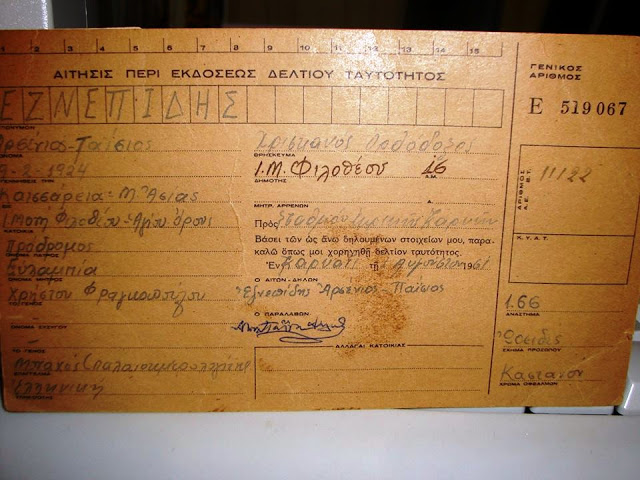 1 2 3 4 5 6 7 8 9 10 11 12 13 14 15
ΑΙΤΗΣΙΣ ΠΕΡΙ ΕΚΔΟΣΕΩΣ ΔΕΛΤΙΟΥ ΤΑΥΤΟΤΗΤΟΣ
ΓΕΝΙΚΟΣ
ΑΡΙΘΜΟΣ
Ε 519067
ΕΖΝΕΠΙΔΗΣ
ΕΠΩΝΥΜΟΝ
Αρσένιος-Παΐσιος
Χριστιανός Ορθόδοξος
ΘΡΗΣΚΕΥΜΑ
Ι.Μ. Φιλοθέου 16
ΔΗΜΟΤΗΣ Α.Μ.
-2-1924
Καισσάρεια-Μ. Ασίας
ΜΗΤΡ. ΑΡΡΕΝΩΝ Α.
ΑΡΙΘΜΟΣ Β.Τ.
Α.Ε.
11122
Κ.Υ.Α.Τ.
Ι.Μονή Φιλοθέου-Αγίου Όρους
ΚΑΤΟΙΚΙΑ
Πρὸς Σταθμόν Καρυών
Πρόδρομος
ΟΝΟΜΑ ΠΑΤΡΟΣ
Βάσει τῶν ὡς ἄνω δηλουμένων στοιχείων μου, παρα-
καλῶ ὅπως μοι χορηγηθῇ δελτίον ταυτότητος.
Ευλαμπία
ΟΝΟΜΑ ΜΗΤΡΟΣ
Ἐν Καρυαί τῇ Αυγούστου 1961
Χρήστου Φραγκοπούλου
Ο ΑΙΤΩΝ-ΔΗΛΩΝ
Εζνεπίδης Αρσένιος-Παΐσιος
ΟΝΟΜΑ ΣΥΖΥΓΟΥ
Ο ΠΑΡΑΛΑΒΩΝ
1.66
ΑΝΑΣΤΗΜΑ
ΤΟ ΓΕΝΟΣ
ΑΛΛΑΓΑΙ ΚΑΤΟΙΚΙΑΣ
Οοειδές
ΣΧΗΜΑ ΠΡΟΣΩΠΟΥ
Μοναχός
ΕΠΑΓΓΕΛΜΑ
Ελληνική
Καστανοί
ΧΡΩΜΑ ΟΦΘΑΛΜΩΝ